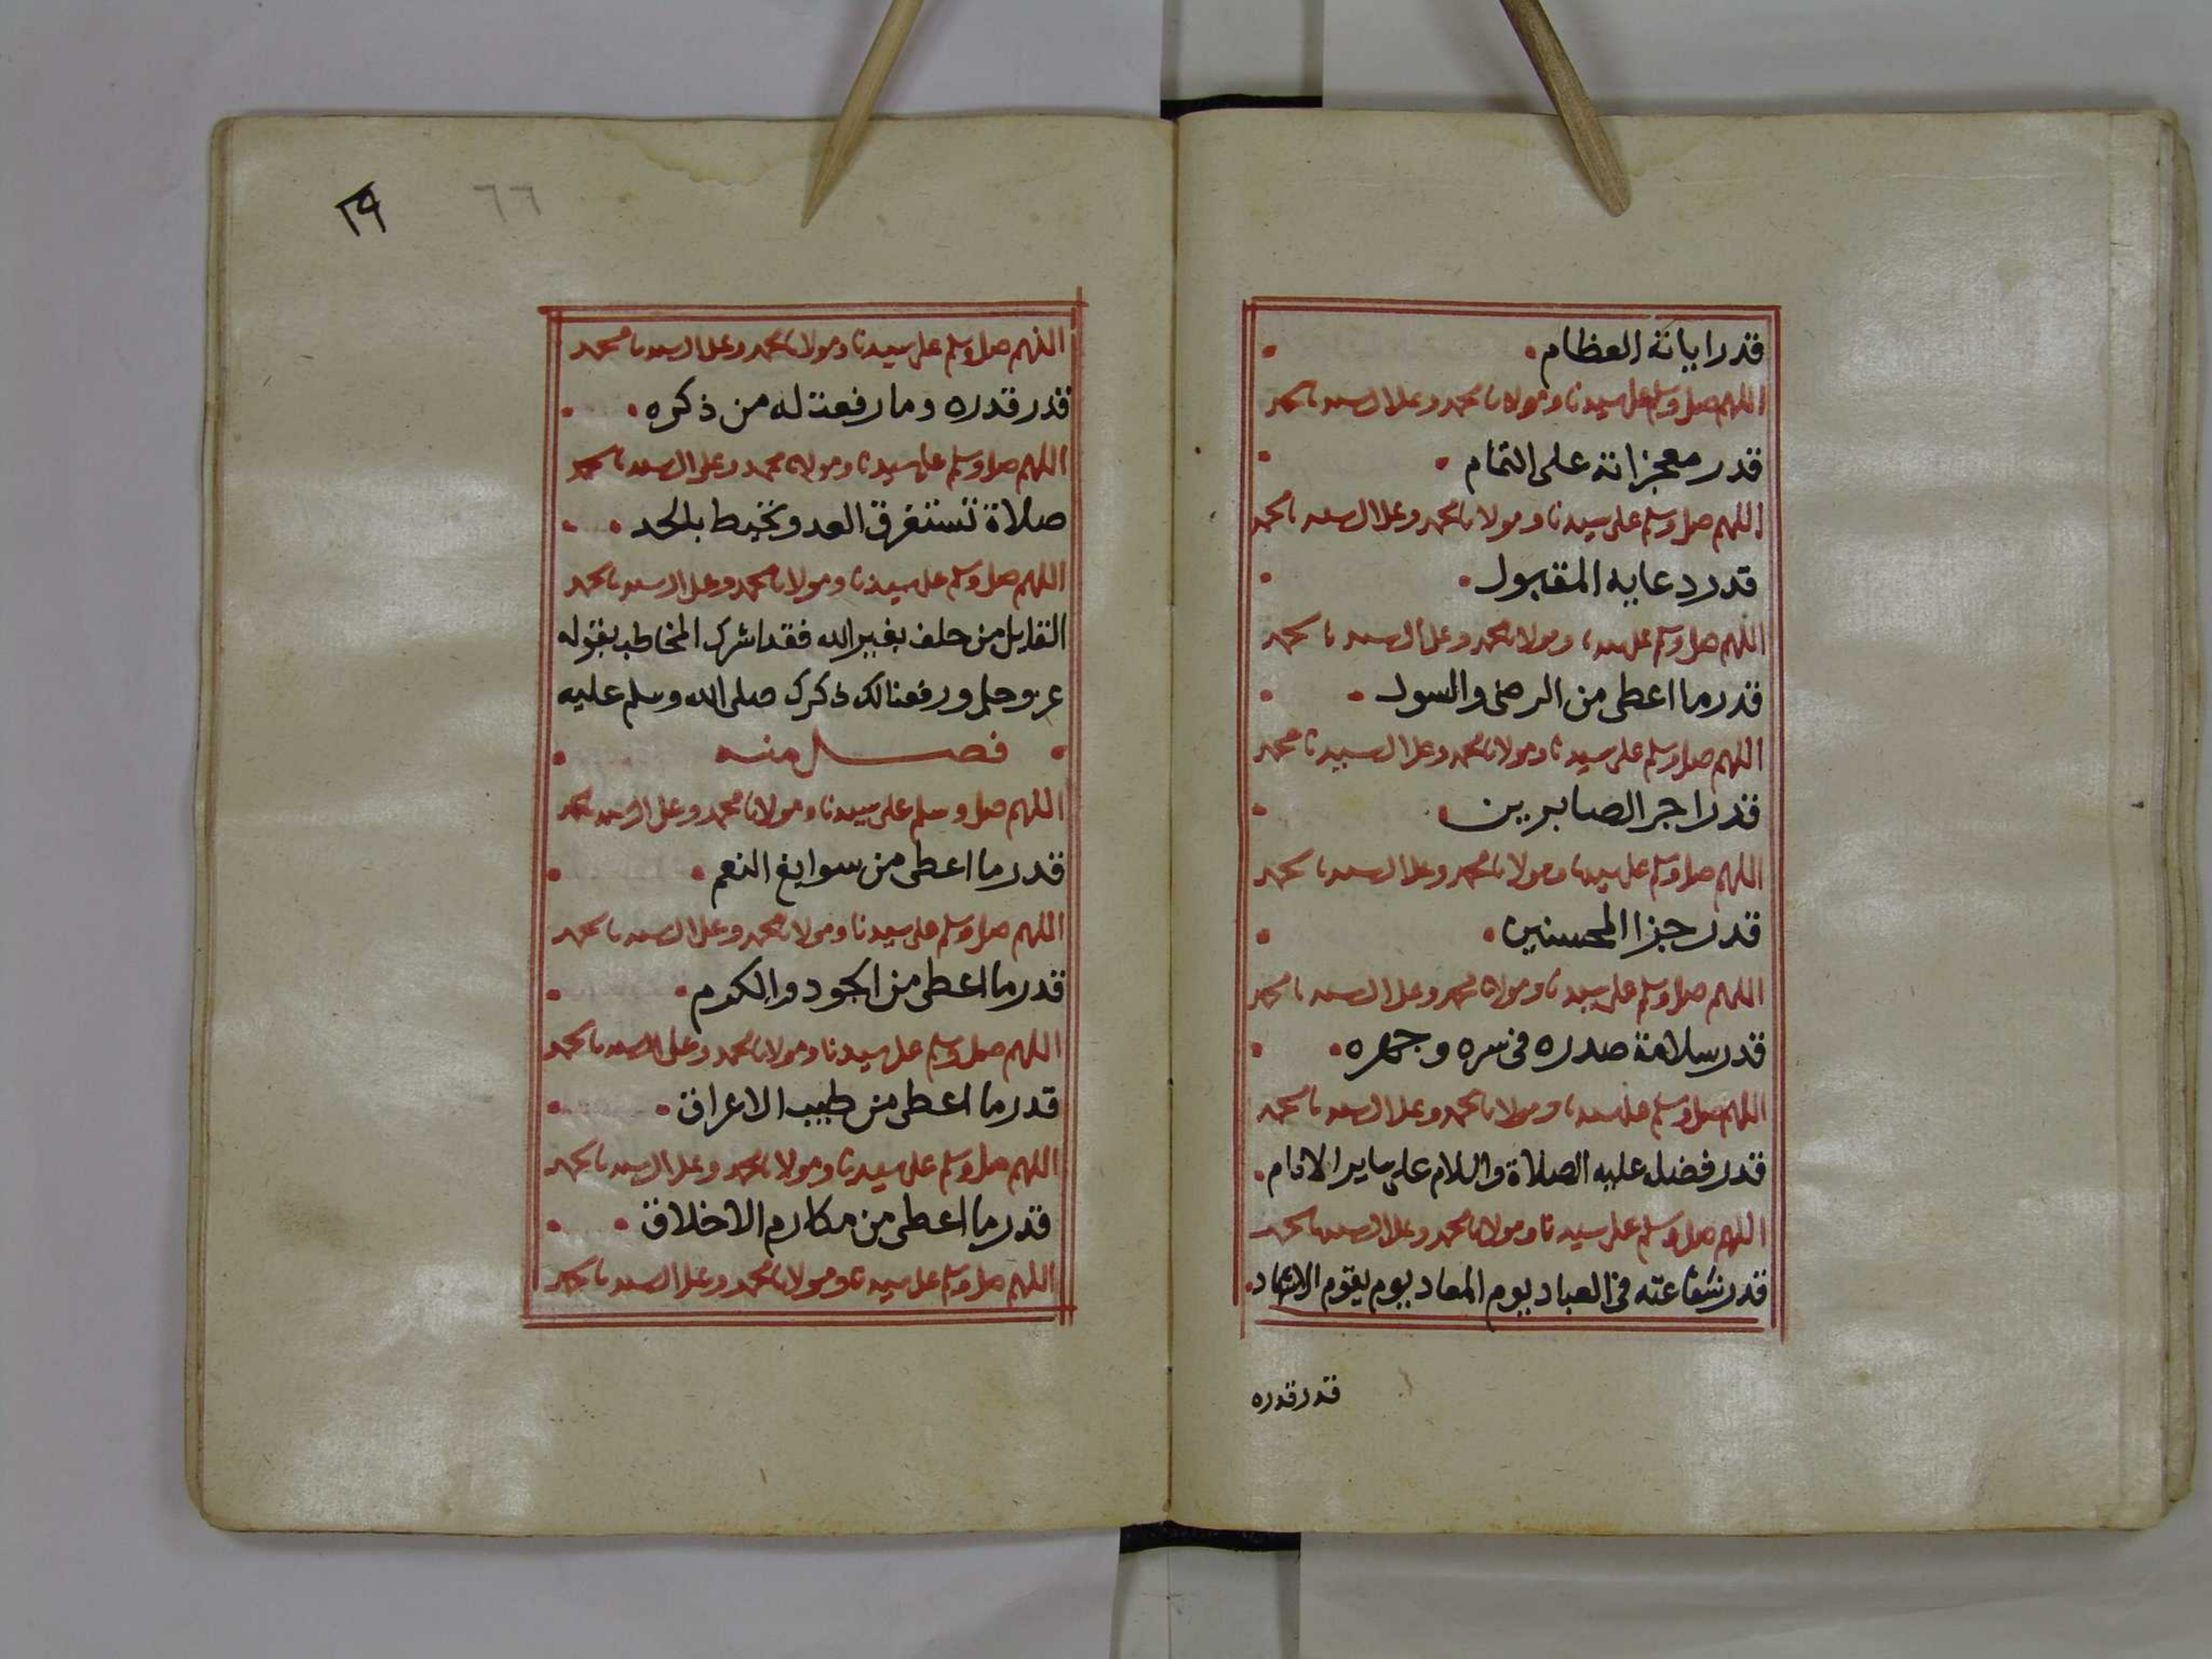 قدر اياته العظام
اللهم صل وسلم على سيدنا ومولانا محمد وعلى ال سيدنا محمد
قدر معجزاته على التمام
اللهم صل وسلم على سيدنا ومولانا محمد وعلى ال سيدنا محمد
قدر دعايه المقبول
اللهم صل وسلم على سيدنا ومولانا محمد وعلى ال سيدنا محمد
قدر ما اعطى من الرضى والسول
اللهم صل وسلم على سيدنا ومولانا محمد وعلى ال سيدنا محمد
قدر اجر الصابرين
اللهم صل وسلم على سيدنا ومولانا محمد وعلى ال سيدنا محمد
قدر جزا المحسنين
اللهم صل وسلم على سيدنا ومولانا محمد وعلى ال سيدنا محمد
قدر سلامة صدره فى سره وجهره
اللهم صل وسلم على سيدنا ومولانا محمد وعلى ال سيدنا محمد
قدر فضله عليه الصلاة والسلام على ساير الانام
اللهم صل وسلم على سيدنا ومولانا محمد وعلى ال سيدنا محمد
قدر شفاعته فى العباد يوم المعاد يوم يقوم الاشهاد
قدر قدره
٢٩ ٦٦
اللهم صل وسلم على سيدنا ومولانا محمد وعلى ال سيدنا محمد
قدر قدره وما رفعت له من ذكره
اللهم صل وسلم على سيدنا ومولانا محمد وعلى ال سيدنا محمد
صلاة تستغرق العد وتحيط بالحد
اللهم صل وسلم على سيدنا ومولانا محمد وعلى ال سيدنا محمد
القايل من حلف بغير الله فقد اشرك المخاطب بقوله
عز وجل ورفعنا لك ذكرك صلى الله وسلم عليه
فصل منه
اللهم صل وسلم على سيدنا ومولانا محمد وعلى ال سيدنا محمد
قدر ما اعطى من سوابغ النعم
اللهم صل وسلم على سيدنا ومولانا محمد وعلى ال سيدنا محمد
قدر ما اعطى من الجود والكرم
اللهم صل وسلم على سيدنا ومولانا محمد وعلى ال سيدنا محمد
قدر ما اعطى من طيب الاعراق
اللهم صل وسلم على سيدنا ومولانا محمد وعلى ال سيدنا محمد
قدر ما اعطى من مكارم الاخلاق
اللهم صل وسلم على سيدنا ومولانا محمد وعلى ال سيدنا محمد